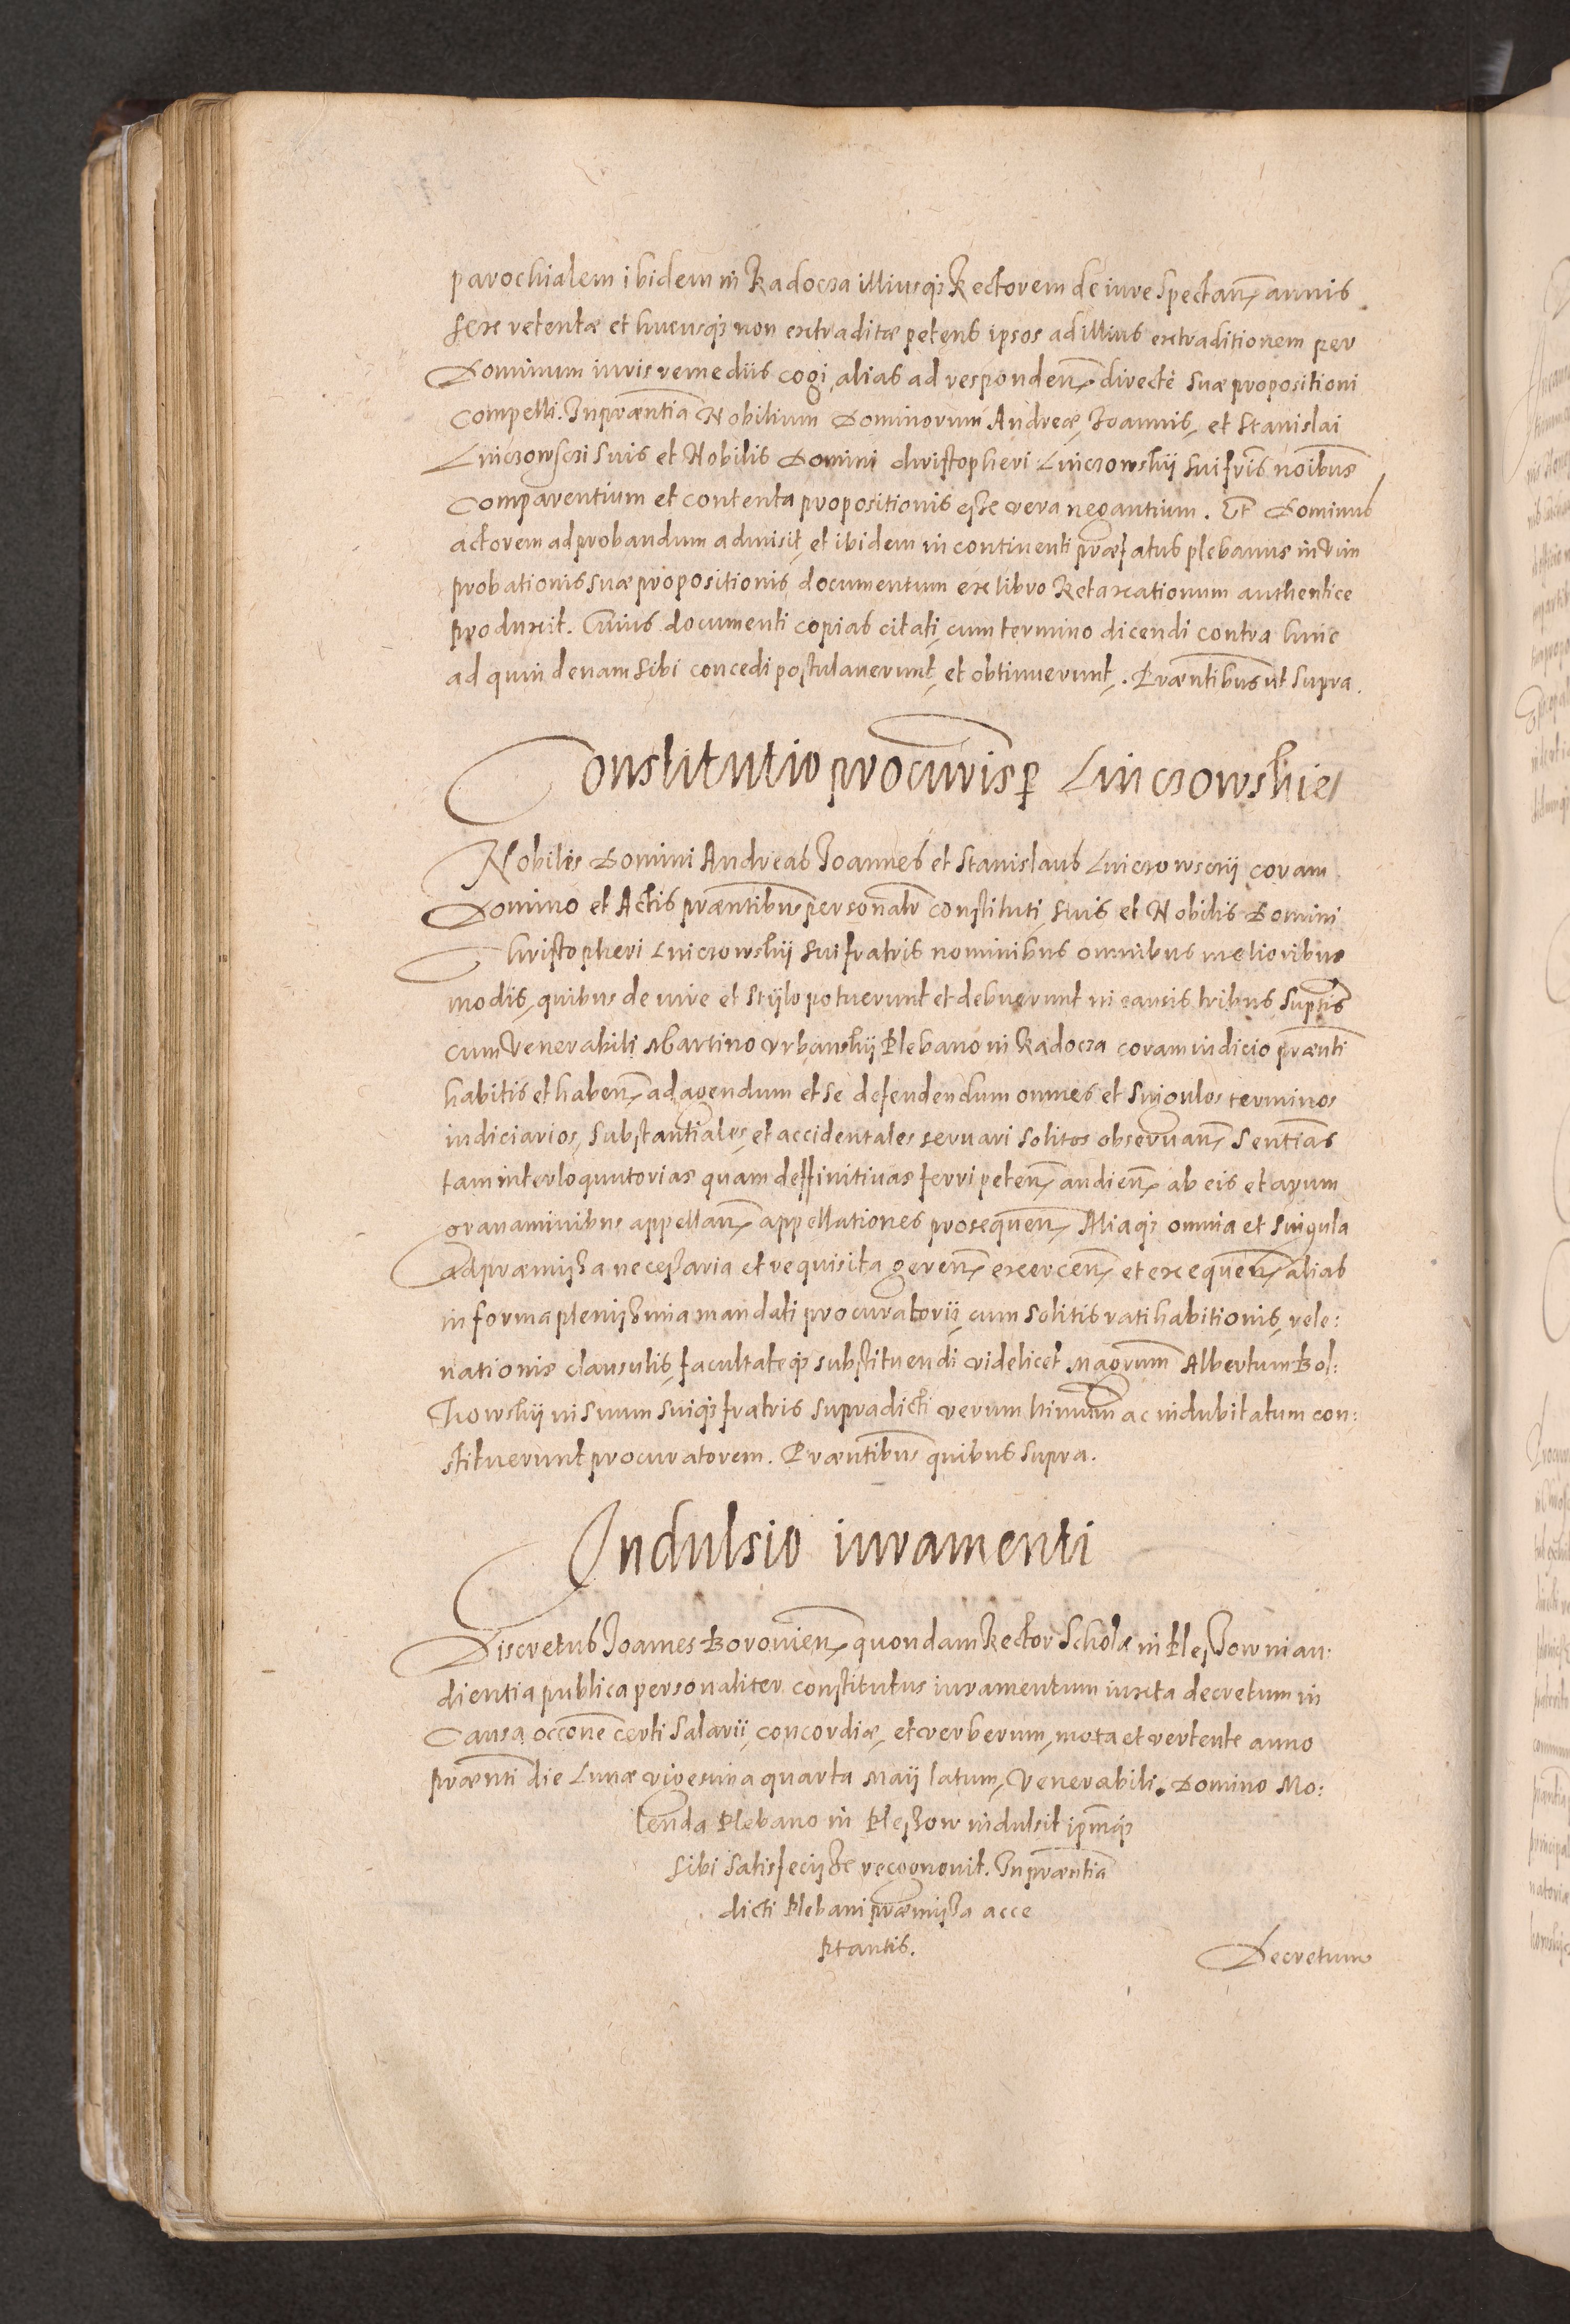 parochialem ibidem in Radocza illiusq3 Rectorem de iure spectan͂ annis
sex retentæ et hucusq3 non extraditæ petens ipsos ad illius extraditionem per
Dominum iuris remediis cogi, alias ad responden͂ directè suæ propositioni
compelli. In præntia Nobilium Dominorum Andreæ, Joannis, et Stanislai
Luiczowsczi suis et Nobilis Domini Christopheri Luiczowskij sui fris noibus
comparentium et contenta propositionis esse vera negantium. Et Dominus
actorem ad probandum admisit, et ibidem in continenti præfatus plebanus in vim
probationis suæ propositionis documentum ex libro Retaxationum authentice
produxit. Cuius documenti copias citati, cum termino dicendi contra hinc
ad quindenam sibi concedi postulaverunt, et obtinuerunt. Præntibus ut supra.
Constitutio procuris per Luiczowskie
Nobiles Domini Andreas Joannes et Stanislaus Luiczowsczij coram
Domino et Actis præntibus personalr constituti, suis et Nobilis Domini
Christopheri Luiczowskij sui fratris nominibus omnibus melioribus
modis, quibus de iure et stijlo potuerunt et debuerunt in causis tribus suptis
cum Venerabili Martino Vrbanskij Plebano in Radocza coram iudicio prænti
habitis et haben͂, ad agendum et se defendendum omnes et singulos terminos
iudiciarios, substantiales, et accidentales servari solitos observan͂ sentias
tam interloquutorias quam deffinitivas ferri peten͂, audien͂, ab eis et arum
gravaminibus appellan͂ appellationes prosequen͂, Aliaq3 omnia et singula
ad præmissa necessaria et requisita geren͂, exercen͂, et exequen͂, alias
in forma plenissima mandati procuratorii, cum solitis ratihabitionis, rele:
uationis clausulis, facultateq3 substituendi videlicet Magrum Albertum Bol:
chowskij in suum suiq3 fratris supradicti verum ltimum ac indubitatum con:
stituerunt procuratorem. Præntibus quibus supra.
Indulsio iuramenti
Discretus Joannes Boronien͂, quondam Rector Scholæ in Plessow in au:
dientia publica personaliter constitutus iuramentum iuxta decretum in
Causa occone certi salarii, concordiæ, et verberum, mota et vertente anno
prænti die Lunæ vigesima quarta Maij latum, Venerabili Domino Mo:
lenda Plebano in Plessow indulsit ipmq3
sibi satisfecisse recognovit. In præntia
dicti Plebani præmissa acce
ptantis.
Decretum